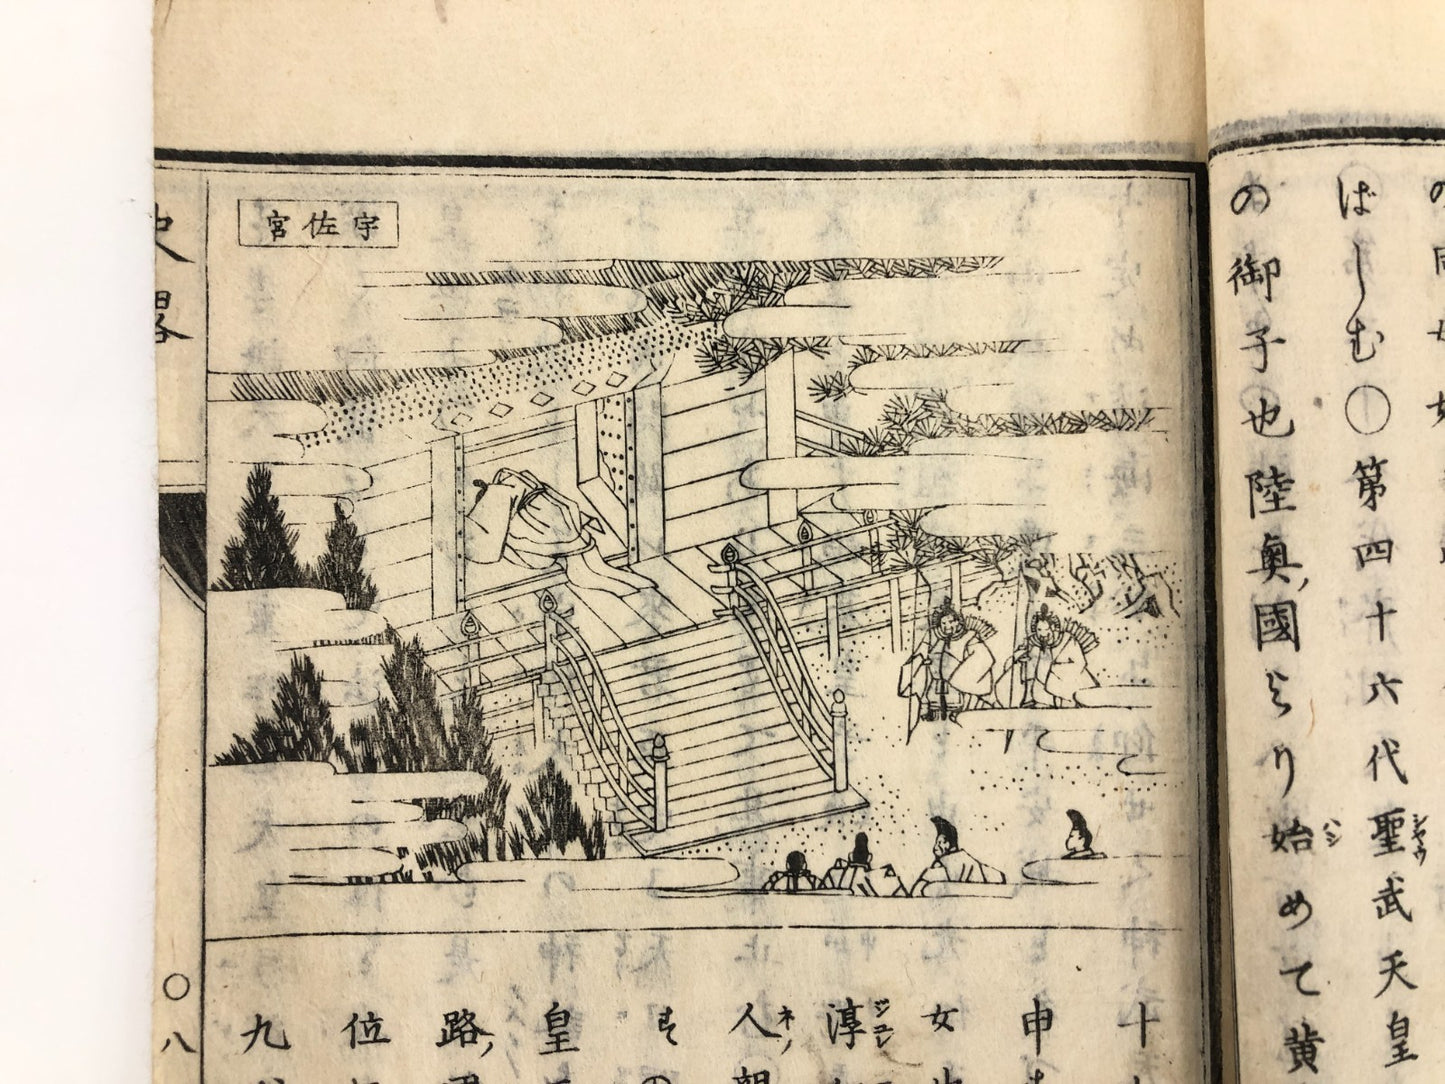 ばしむ〇第四十六代聖武天皇
シヤウ
の御子也陸奥、國より始めて黄
ハジ
宇佐宮
十
申
女
淳
ジユン
人
皇
路、
位
九
史畧
〇八